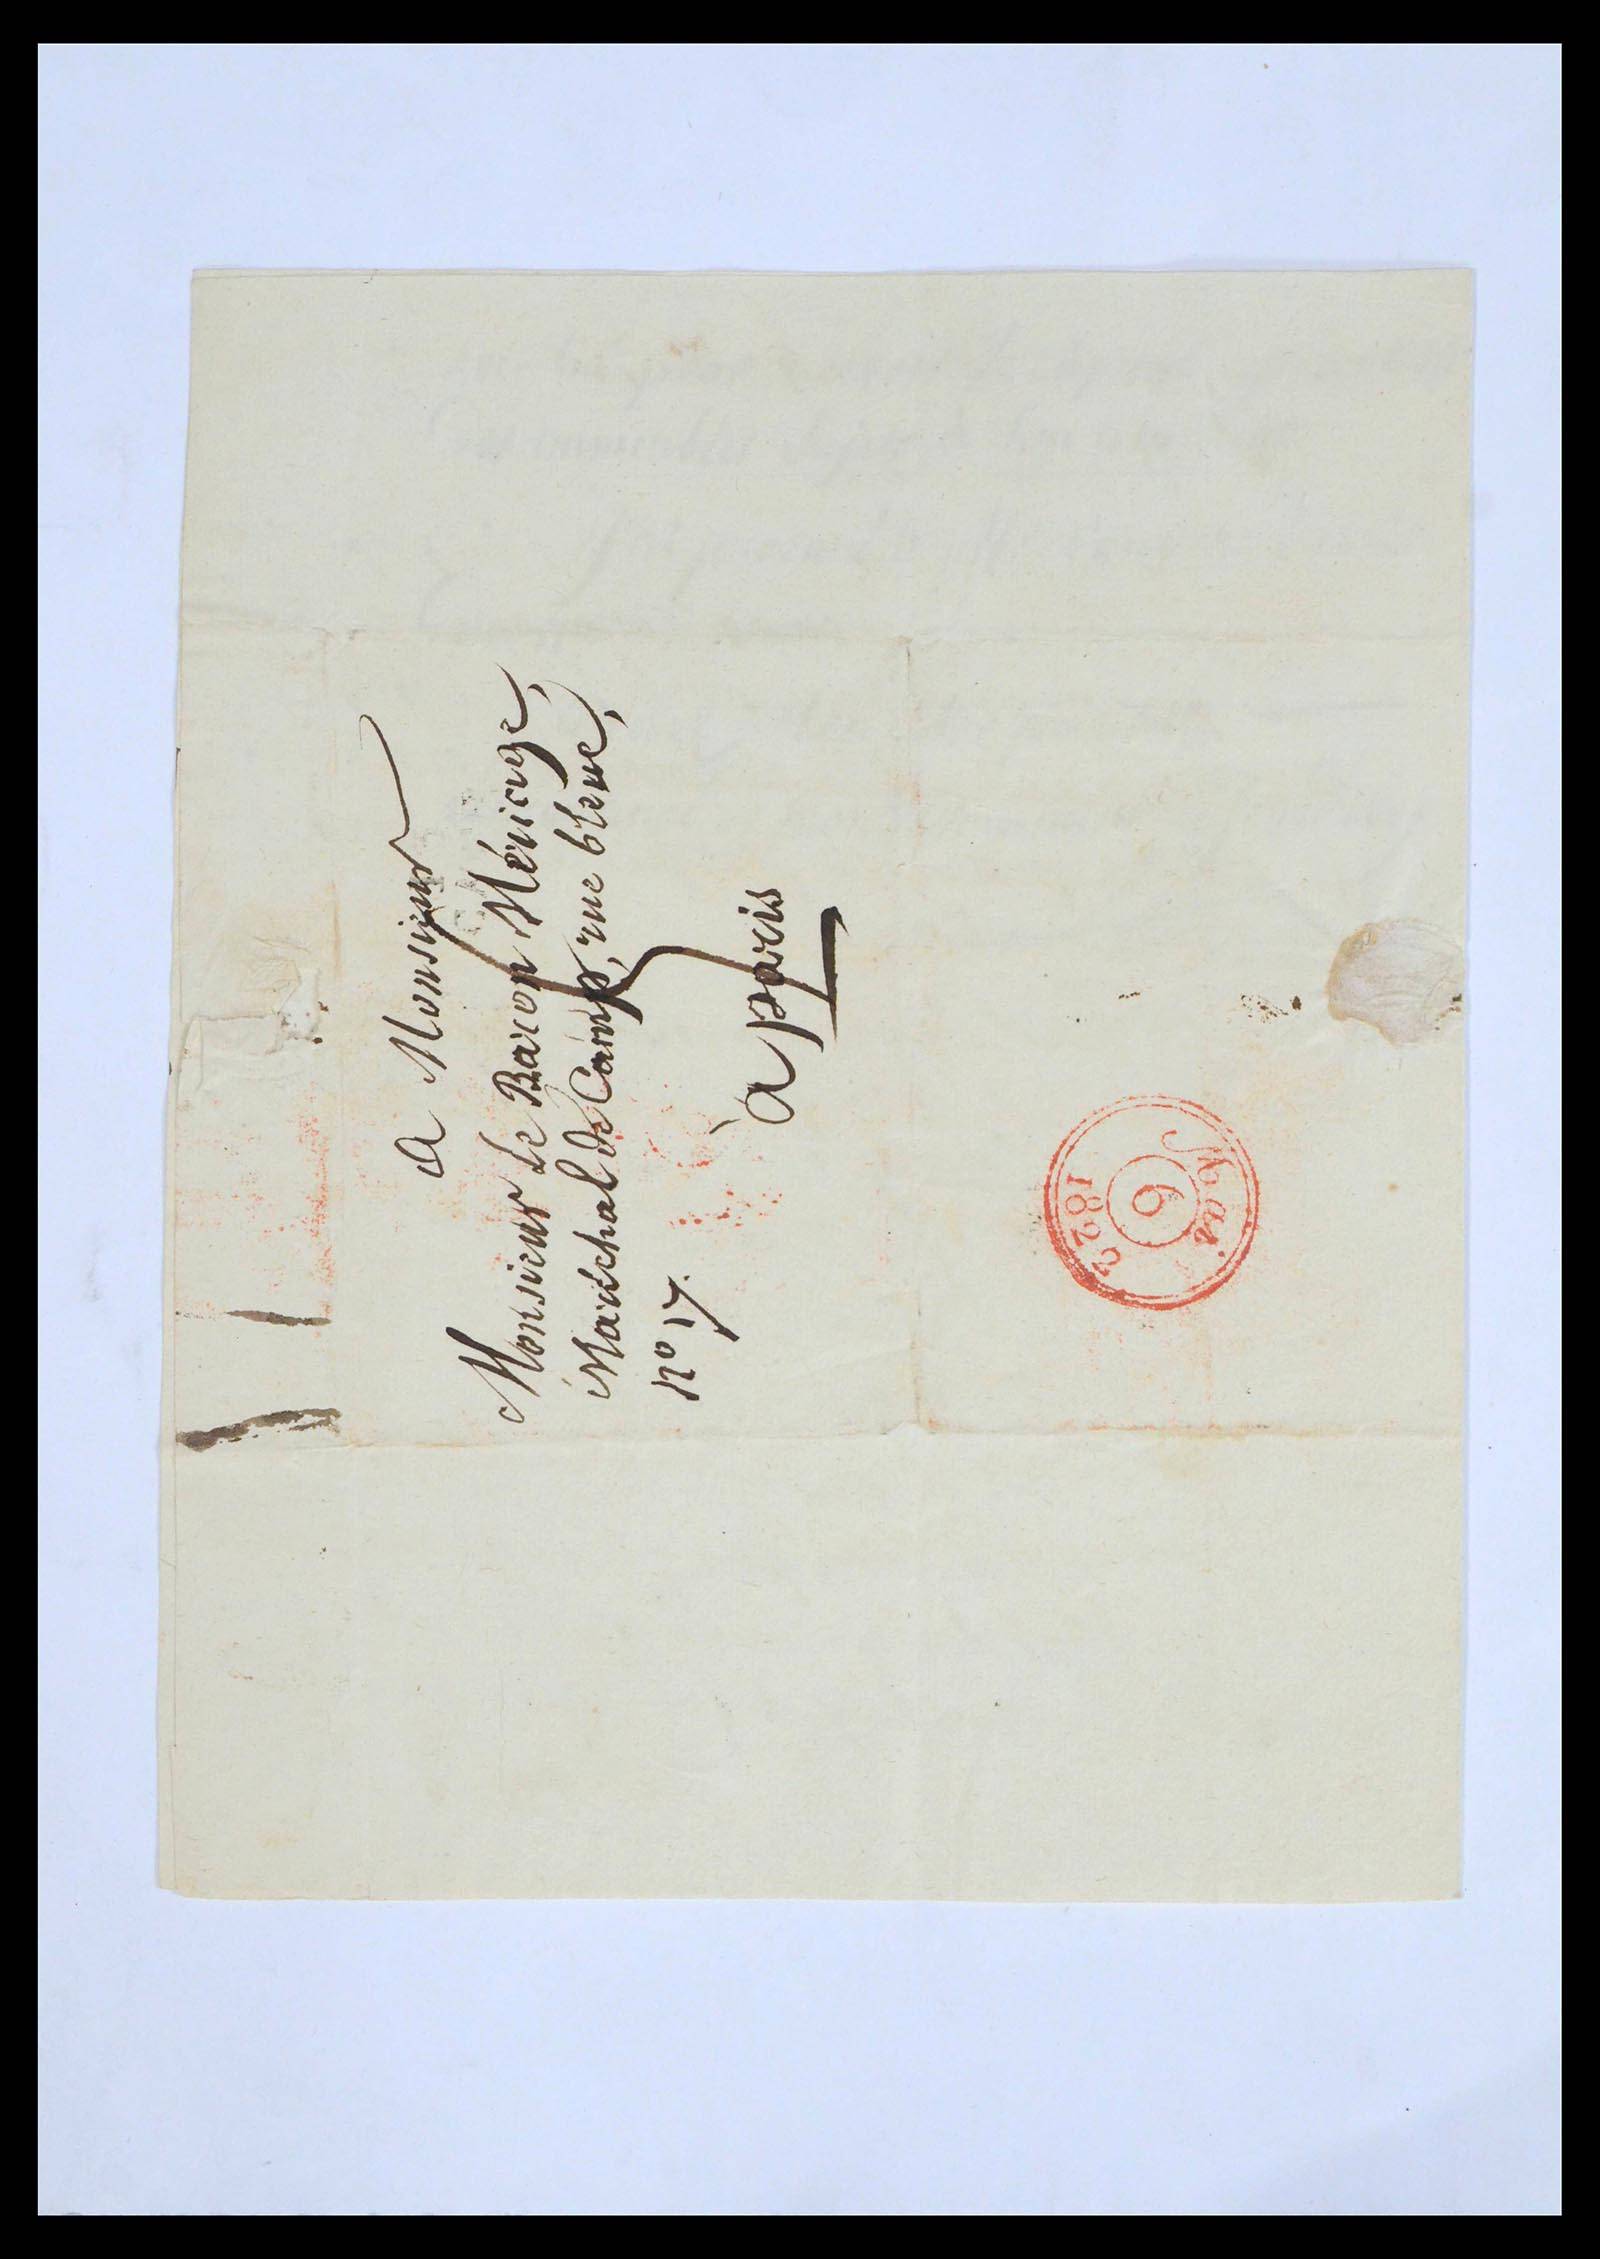 A Monsieur
Monsieur Le Baron Mériage,
Maréchal de Camp, rue bleue,
nº 17.
à paris
Mars
6
1823